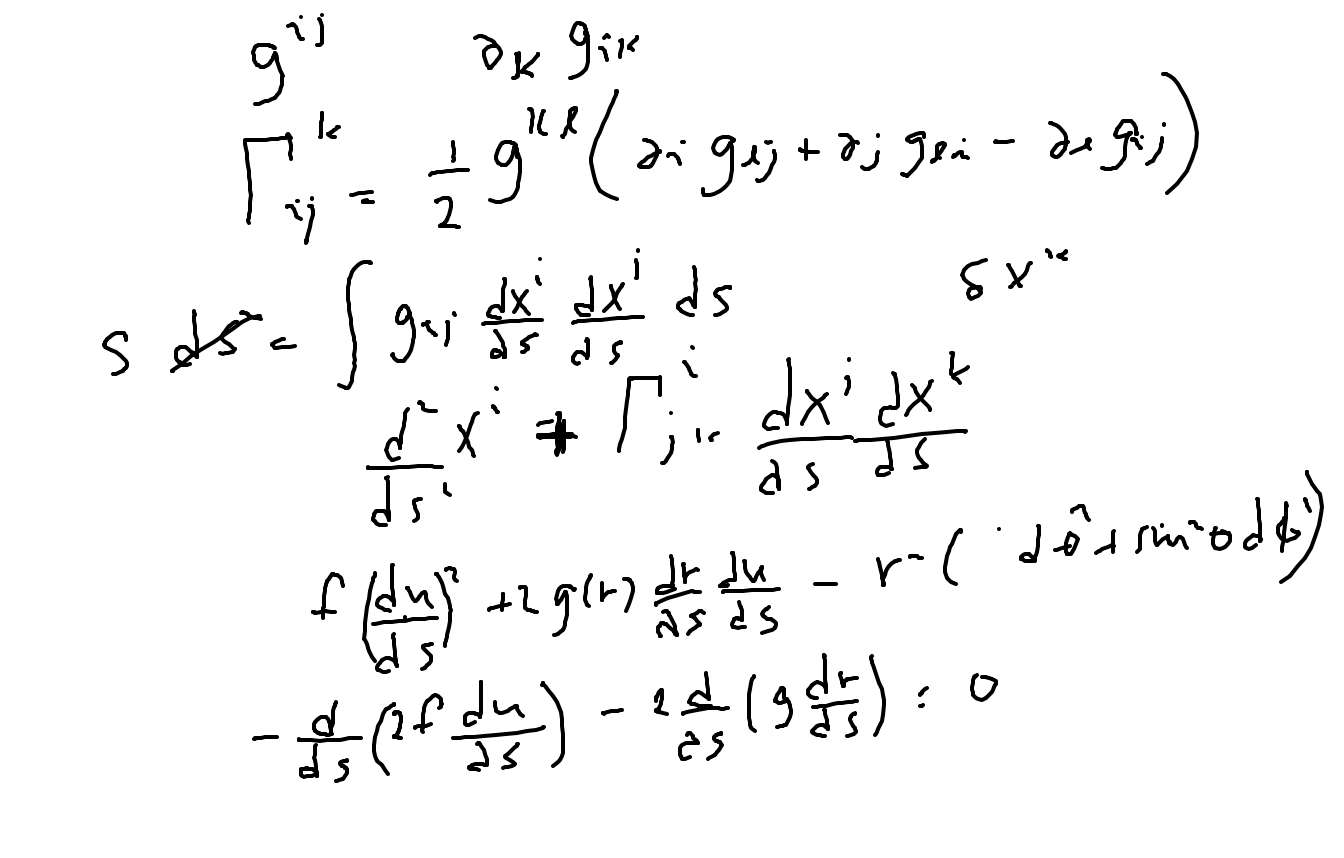 g^{ij} ∂_k g_{ik}
Γ^k_{ij} = 1/2 g^{kl} ( ∂_i g_{lj} + ∂_j g_{li} − ∂_l g_{ij} )
S = ∫ g_{ij} dx^i/ds dx^j/ds ds δx^k
d²x^i/ds² + Γ^i_{jk} dx^j/ds dx^k/ds
f (du/ds)² + 2 g(r) dr/ds du/ds − r² ( dθ² + sin²θ dϕ² )
− d/ds ( 2f du/ds ) − 2 d/ds ( g dr/ds ) = 0